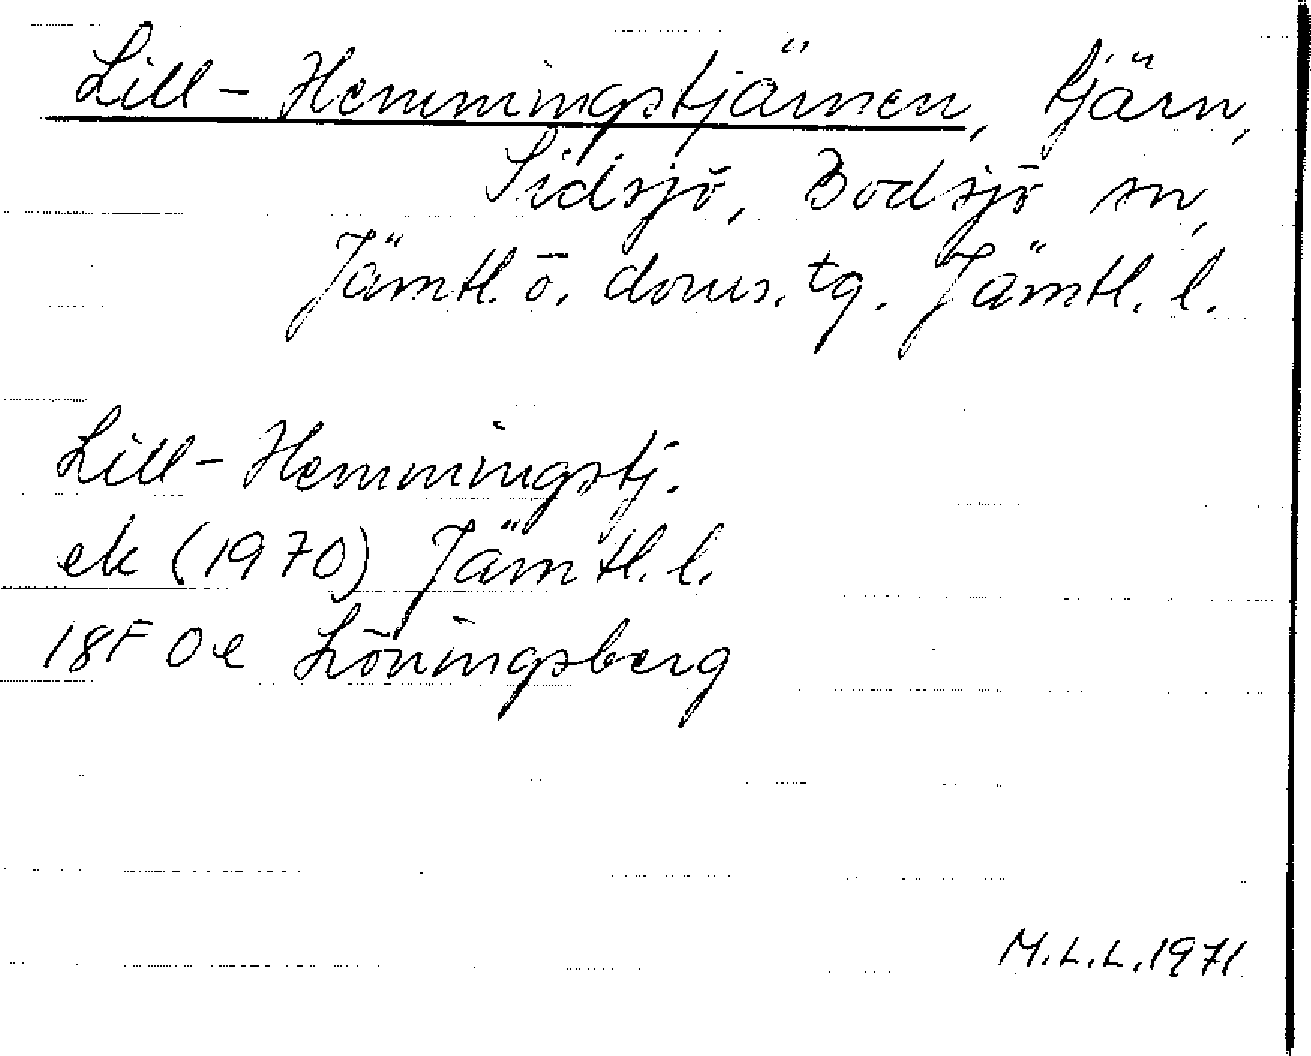 Lill-Hemmingstjärnen, tjärn,
Sidsjö, Bodsjö sn,
Jämtl. ö. doms. tg. Jämtl. l.
Lill-Hemmingstj.
ek (1970) Jämtl. l.
18F 0e Löningsberg
M.L.L. 1971